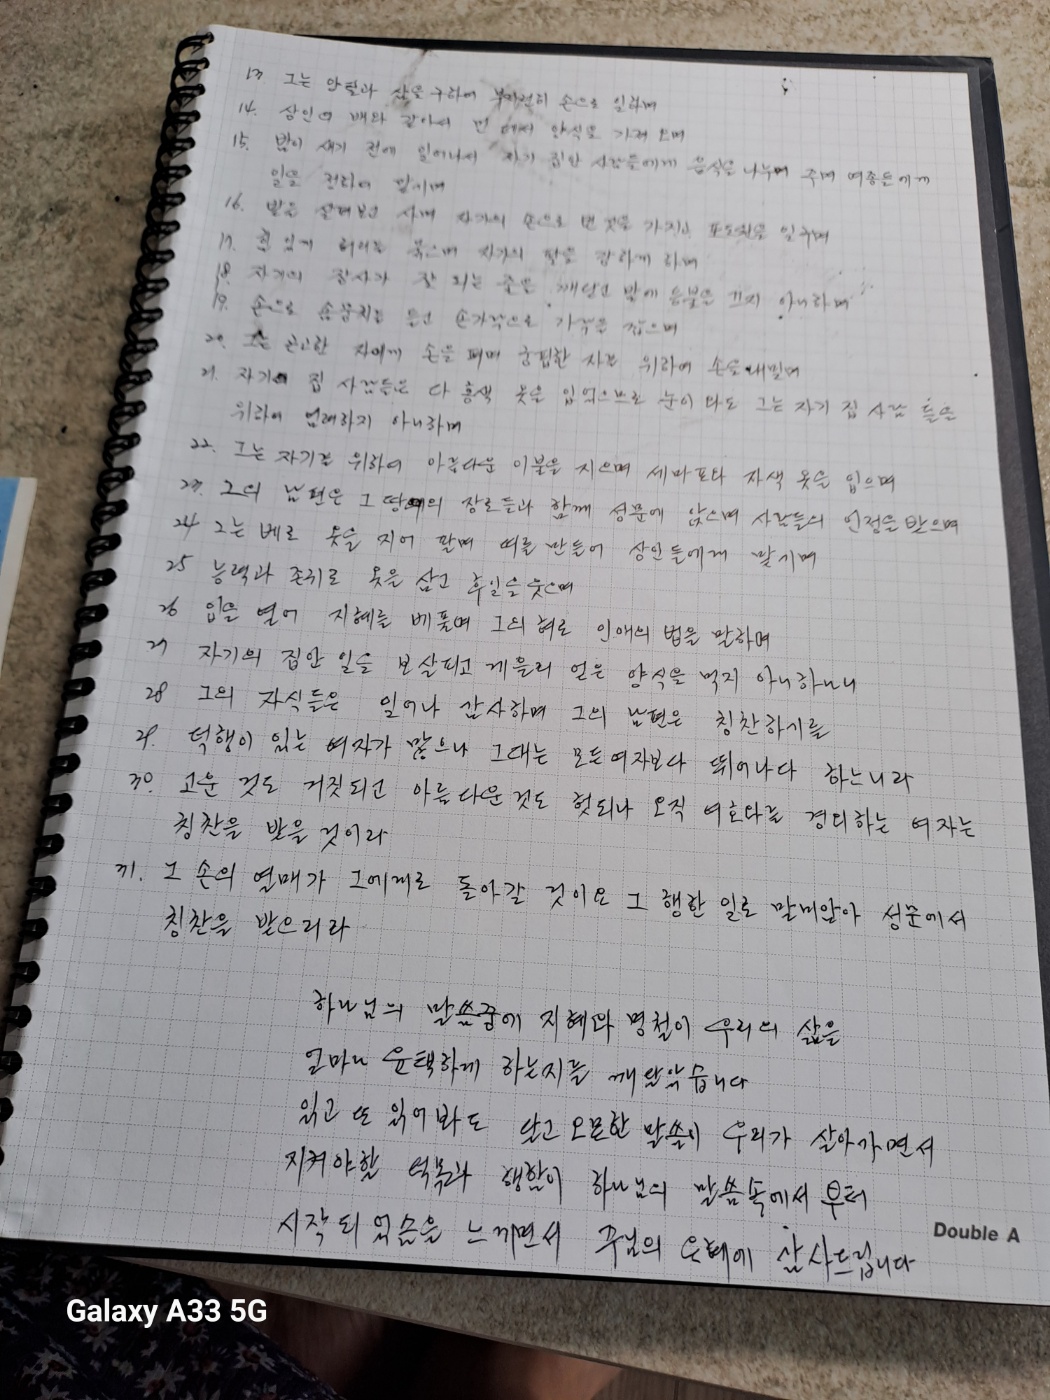 13 그는 양털과 삼을 구하여 부지런히 손으로 일하며
14. 상인의 배와 같아서 먼 데서 양식을 가져 오며
15. 밤이 새기 전에 일어나서 자기 집안 사람들에게 음식을 나누며 주며 여종들에게
일을 정하여 맡기며
16. 밭을 살펴보고 사며 자기의 손으로 번 것을 가지고 포도원을 일구며
17. 힘 있게 허리를 묶으며 자기의 팔을 강하게 하며
18. 자기의 장사가 잘 되는 줄을 깨닫고 밤에 등불을 끄지 아니하며
19. 손으로 솜뭉치를 들고 손가락으로 가락을 잡으며
20. 그는 곤고한 자에게 손을 펴며 궁핍한 자를 위하여 손을 내밀며
21. 자기 집 사람들은 다 홍색 옷을 입었으므로 눈이 와도 그는 자기 집 사람 들을
위하여 염려하지 아니하며
22. 그는 자기를 위하여 아름다운 이불을 지으며 세마포와 자색 옷을 입으며
23. 그의 남편은 그 땅의 장로들과 함께 성문에 앉으며 사람들의 인정을 받으며
24 그는 베로 옷을 지어 팔며 띠를 만들어 상인들에게 맡기며
25 능력과 존귀로 옷을 삼고 후일을 웃으며
26 입을 열어 지혜를 베풀며 그의 혀로 인애의 법을 말하며
27 자기의 집안 일을 보살피고 게을리 얻은 양식을 먹지 아니하나니
28 그의 자식들은 일어나 감사하며 그의 남편은 칭찬하기를
29. 덕행이 있는 여자가 많으나 그대는 모든 여자보다 뛰어나다 하느니라
30. 고운 것도 거짓되고 아름다운 것도 헛되나 오직 여호와를 경외하는 여자는
칭찬을 받을 것이라
31. 그 손의 열매가 그에게로 돌아갈 것이요 그 행한 일로 말미암아 성문에서
칭찬을 받으리라
하나님의 말씀중에 지혜와 명철이 우리의 삶을
얼마나 윤택하게 하는지를 깨달았습니다
읽고 또 읽어봐도 달고 오묘한 말씀이 우리가 살아가면서
지켜야할 덕목과 행함이 하나님의 말씀속에서 부터
시작되 었슴을 느끼면서 주님의 은혜에 감사드립니다
Double A
Galaxy A33 5G